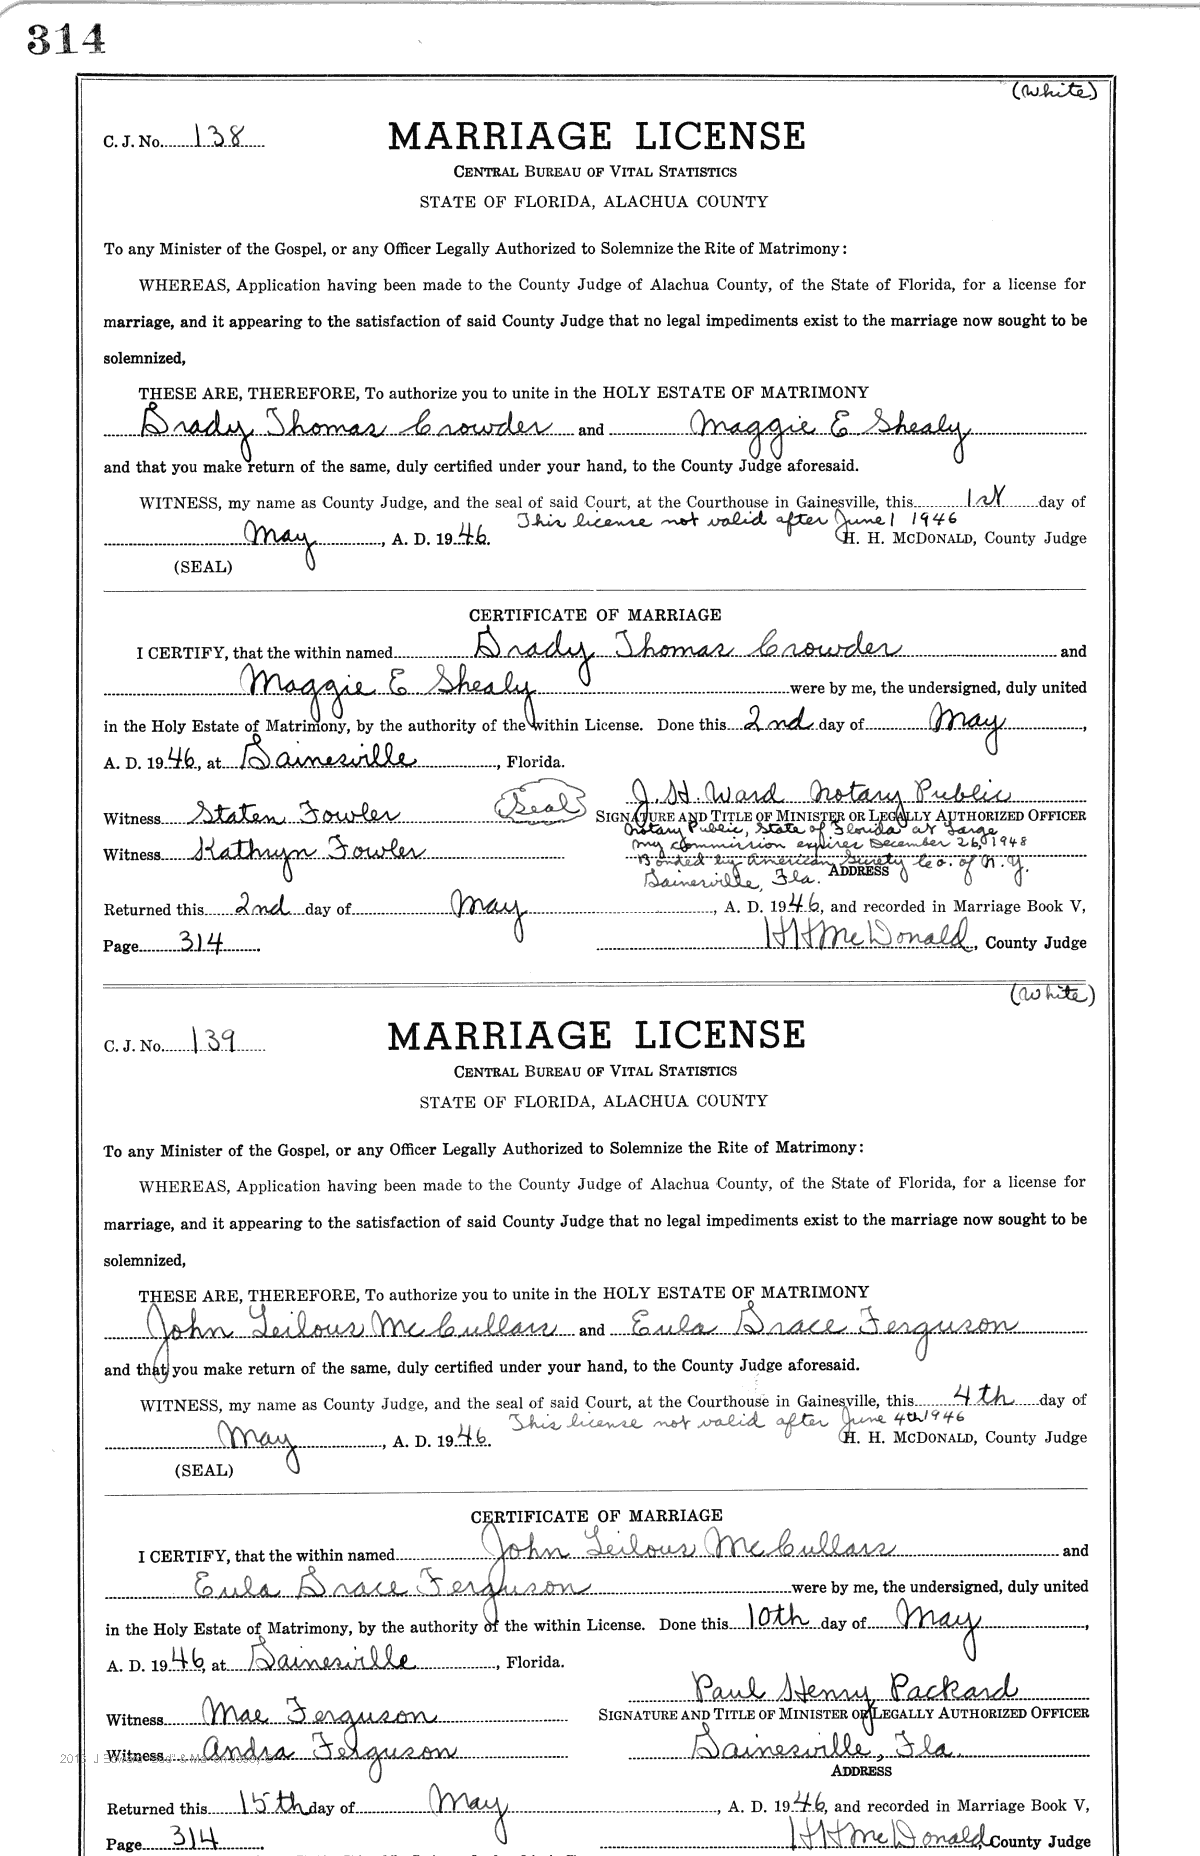 314
(White)
C. J. No. 138 MARRIAGE LICENSE
CENTRAL BUREAU OF VITAL STATISTICS
STATE OF FLORIDA, ALACHUA COUNTY
To any Minister of the Gospel, or any Officer Legally Authorized to Solemnize the Rite of Matrimony:
WHEREAS, Application having been made to the County Judge of Alachua County, of the State of Florida, for a license for
marriage, and it appearing to the satisfaction of said County Judge that no legal impediments exist to the marriage now sought to be
solemnized,
THESE ARE, THEREFORE, To authorize you to unite in the HOLY ESTATE OF MATRIMONY
Grady Thomas Crowder and Maggie E Shealy
and that you make return of the same, duly certified under your hand, to the County Judge aforesaid.
WITNESS, my name as County Judge, and the seal of said Court, at the Courthouse in Gainesville, this 1st day of
This license not valid after June 1 1946
May, A. D. 1946. H. H. MCDONALD, County Judge
(SEAL)
CERTIFICATE OF MARRIAGE
I CERTIFY, that the within named Grady Thomas Crowder and
Maggie E Shealy were by me, the undersigned, duly united
in the Holy Estate of Matrimony, by the authority of the within License. Done this 2nd day of May,
A. D. 1946, at Gainesville, Florida.
J. H. Ward Notary Public
Witness Staten Fowler (Seal) SIGNATURE AND TITLE OF MINISTER OR LEGALLY AUTHORIZED OFFICER
Notary Public, State of Florida at Large
My commission expires December 26, 1948
Witness Kathryn Fowler
Bonded by American Surety Co. of N.Y.
Gainesville, Fla. ADDRESS
Returned this 2nd day of May, A. D. 1946, and recorded in Marriage Book V,
Page 314 H H McDonald, County Judge
(White)
C. J. No. 139 MARRIAGE LICENSE
CENTRAL BUREAU OF VITAL STATISTICS
STATE OF FLORIDA, ALACHUA COUNTY
To any Minister of the Gospel, or any Officer Legally Authorized to Solemnize the Rite of Matrimony:
WHEREAS, Application having been made to the County Judge of Alachua County, of the State of Florida, for a license for
marriage, and it appearing to the satisfaction of said County Judge that no legal impediments exist to the marriage now sought to be
solemnized,
THESE ARE, THEREFORE, To authorize you to unite in the HOLY ESTATE OF MATRIMONY
John Leilous McCullars and Eula Grace Ferguson
and that you make return of the same, duly certified under your hand, to the County Judge aforesaid.
WITNESS, my name as County Judge, and the seal of said Court, at the Courthouse in Gainesville, this 4th day of
This license not valid after June 4th 1946
May, A. D. 1946. H. H. MCDONALD, County Judge
(SEAL)
CERTIFICATE OF MARRIAGE
I CERTIFY, that the within named John Leilous McCullars and
Eula Grace Ferguson were by me, the undersigned, duly united
in the Holy Estate of Matrimony, by the authority of the within License. Done this 10th day of May,
A. D. 1946, at Gainesville, Florida.
Paul Henry Packard
Witness Mae Ferguson SIGNATURE AND TITLE OF MINISTER OR LEGALLY AUTHORIZED OFFICER
Witness Andra Ferguson Gainesville, Fla.
ADDRESS
Returned this 15th day of May, A. D. 1946, and recorded in Marriage Book V,
Page 314 H H McDonald, County Judge